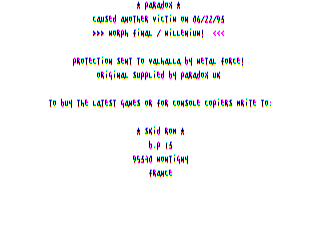 * PARADOX *
CAUSED ANOTHER VICTIM ON 06/22/93
>>> MORPH FINAL / MILLENIUM! <<<
PROTECTION SENT TO VALHALLA BY METAL FORCE!
ORIGINAL SUPPLIED BY PARADOX UK
TO BUY THE LATEST GAMES OR FOR CONSOLE COPIERS WRITE TO:
* SKID ROW *
B.P 13
95370 MONTIGNY
FRANCE